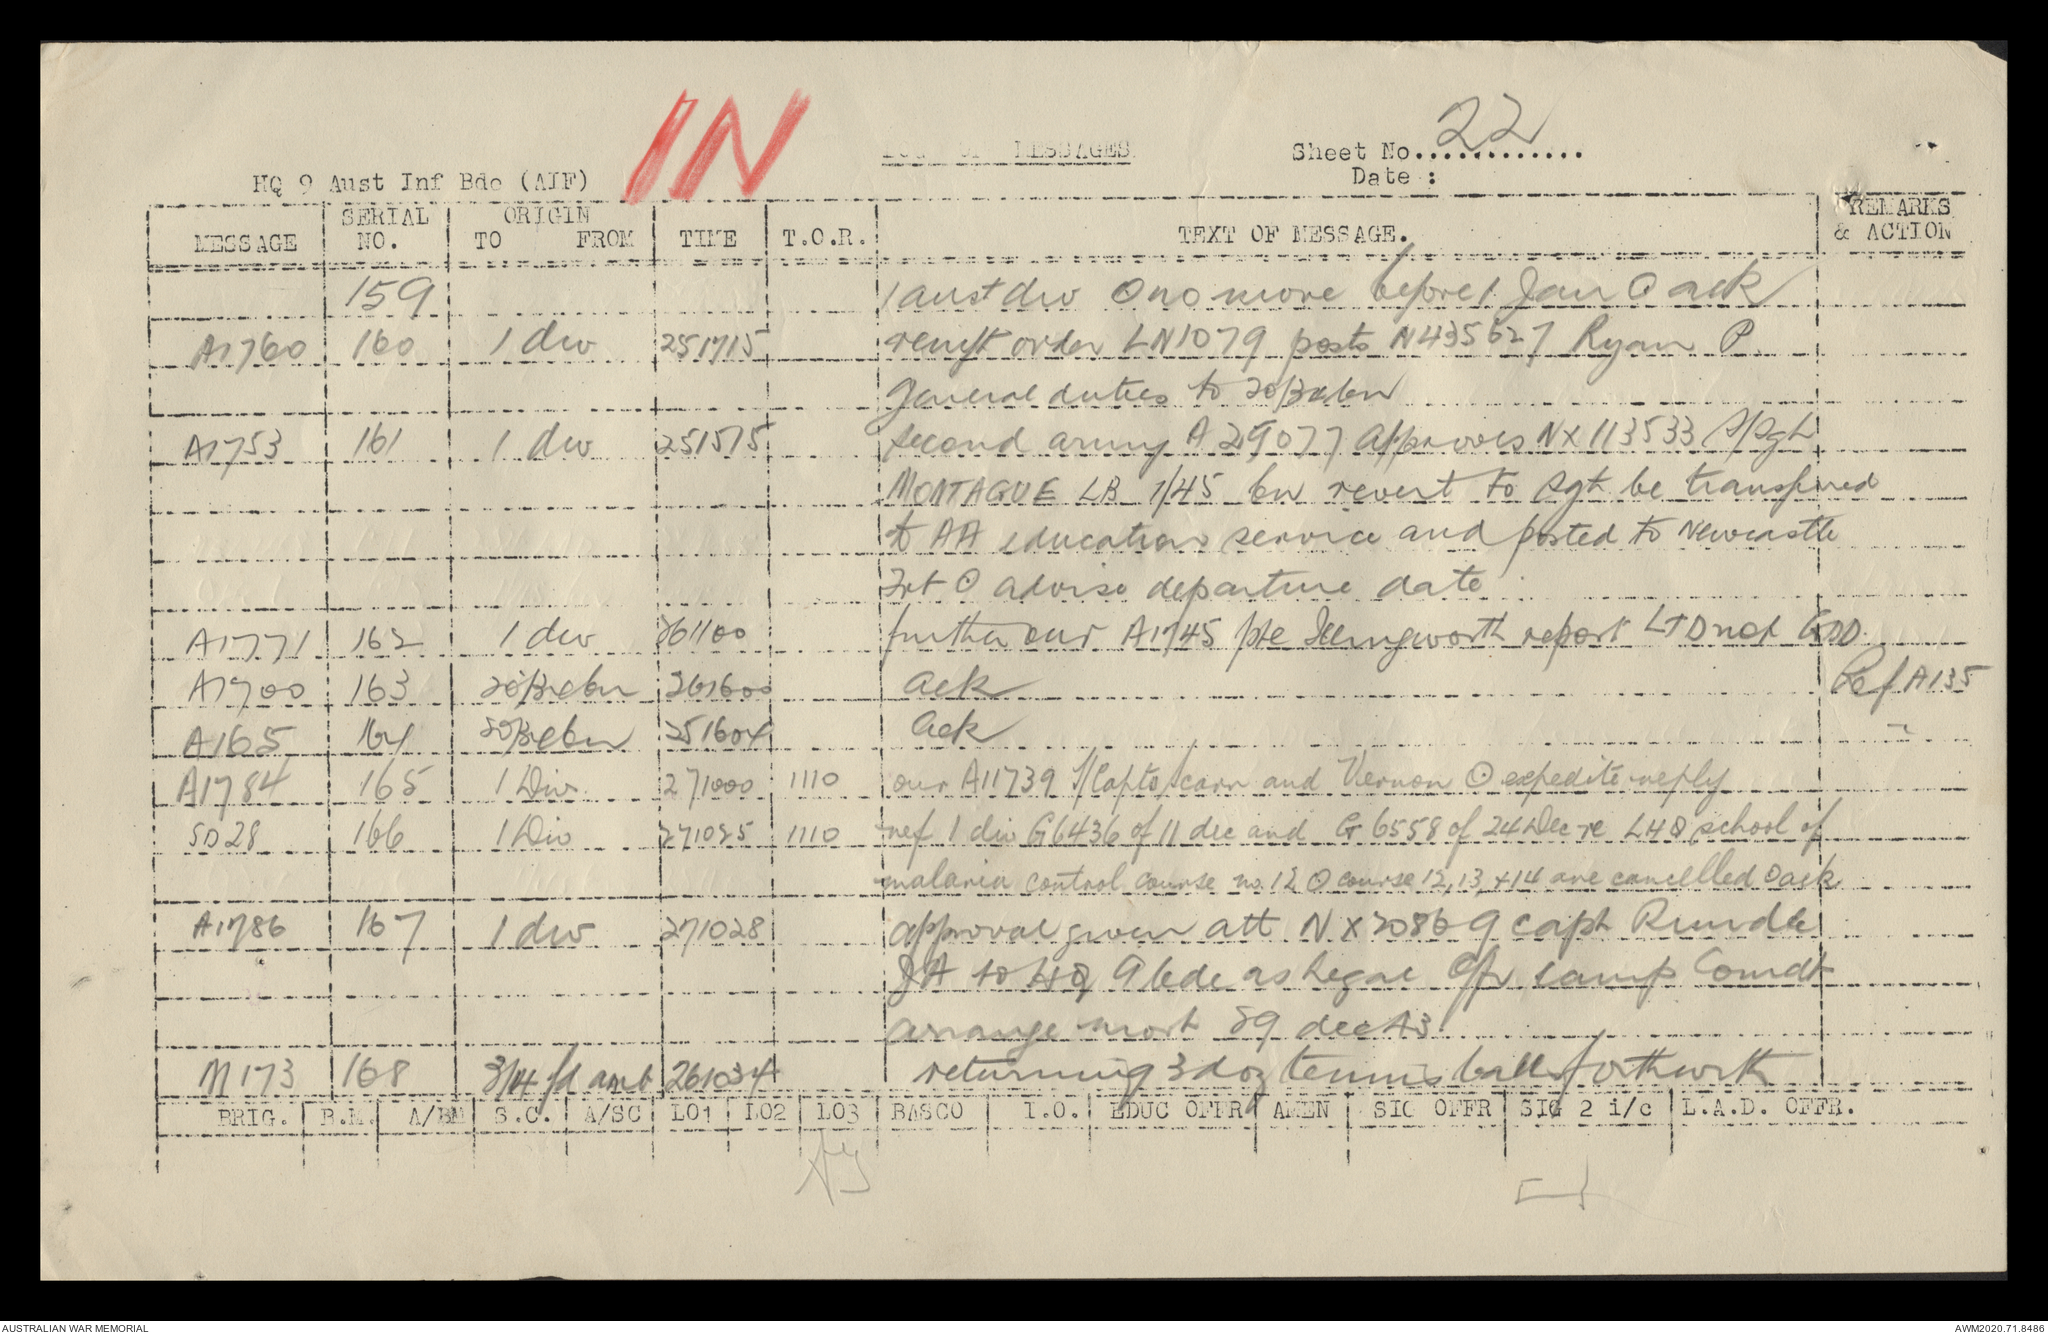 IN
LOG OF MESSAGES
Sheet No. 22
Date :
HQ 9 Aust Inf Bde (AIF)
MESSAGE SERIAL NO. ORIGIN TO FROM TIME T.O.R. TEXT OF MESSAGE. REMARKS & ACTION
159 1 aust div O no more before 1 Jan O ack
A1760 160 1 div 251715 reinft order LN1079 posts N435627 Ryan P
General duties to 20/
A1753 161 1 div 251515 second army A 29077 approves NX113533 S/Sgt
MONTAGUE LB 1/45 bn revert to Sgt be transferred
to AA education service and posted to Newcastle
O advise departure date
A1771 162 1 div 261100 further our A1745 pte Illingworth report LTD not GDD
A1700 163 261600 ack Ref A135
A165 164 251604 ack "
A1784 165 1 Div 271000 1110 our A11739 and Vernon O expedite reply
SD28 166 1 Div 271025 1110 ref 1 div G6436 of 11 dec and G6558 of 24 Dec re LHQ school of
malaria control course no. 12 O course 12, 13, +14 are cancelled O ack
A1786 167 1 div 271028 approval given att NX20869 capt Rundle
JA to HQ 9 bde as Legal Offr camp Comdt
arrange 29 dec 43
M173 168 3/14 fd amb 261034 returning 3 doz tennis balls forthwith
BRIG. B.M. A/BM S.C. A/SC LO1 LO2 LO3 BASCO I.O. EDUC OFFR AMEN SIG OFFR SIG 2 i/c L.A.D. OFFR.
AUSTRALIAN WAR MEMORIAL
AWM2020.71.8486